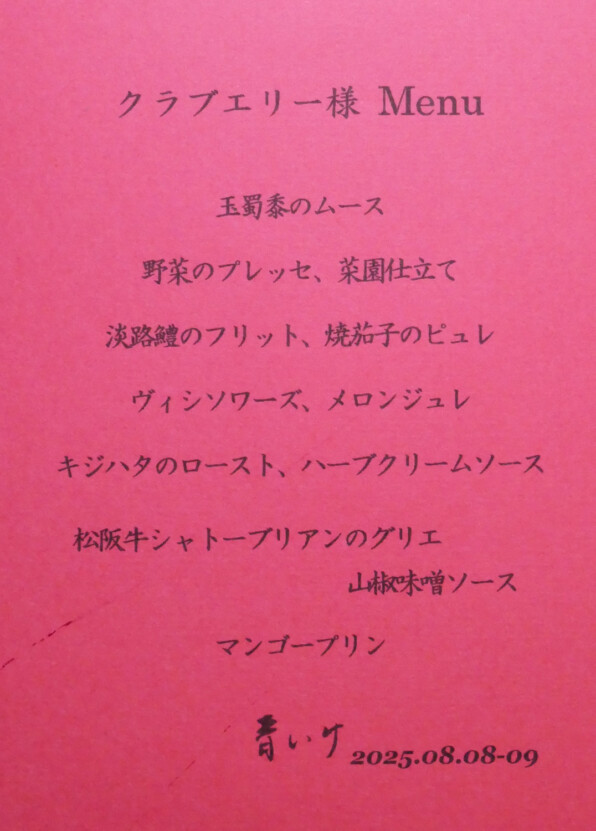 クラブエリー様 Menu
玉蜀黍のムース
野菜のプレッセ、菜園仕立て
淡路鱧のフリット、焼茄子のピュレ
ヴィシソワーズ、メロンジュレ
キジハタのロースト、ハーブクリームソース
松阪牛シャトーブリアンのグリエ
山椒味噌ソース
マンゴープリン
青いけ 2025.08.08-09